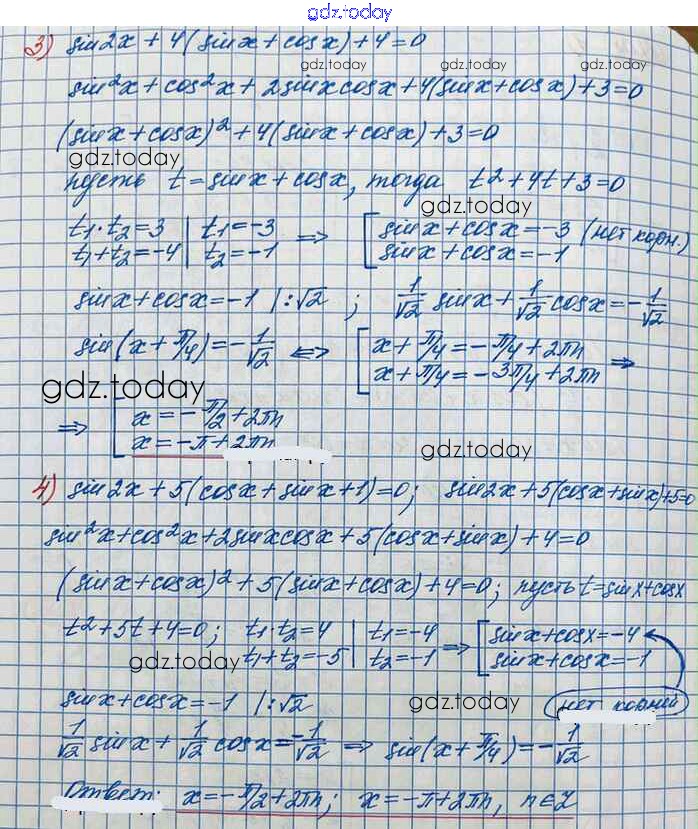 gdz.today
3) sin2x + 4(sinx + cosx) + 4 = 0
gdz.today gdz.today
sin²x + cos²x + 2sinxcosx + 4(sinx + cosx) + 3 = 0
(sinx + cosx)² + 4(sinx + cosx) + 3 = 0
gdz.today
пусть t = sinx + cosx, тогда t² + 4t + 3 = 0
gdz.today
t₁·t₂ = 3 | t₁ = -3 ⇒ [ sinx + cosx = -3 (нет корн.)
t₁ + t₂ = -4 | t₂ = -1 [ sinx + cosx = -1
sinx + cosx = -1 |:√2 ; 1/√2 sinx + 1/√2 cosx = -1/√2
sin(x + π/4) = -1/√2 ⇔ [ x + π/4 = -π/4 + 2πn
[ x + π/4 = -3π/4 + 2πn ⇒
gdz.today
⇒ [ x = -π/2 + 2πn
[ x = -π + 2πn
gdz.today
4) sin2x + 5(cosx + sinx + 1) = 0; sin2x + 5(cosx + sinx) + 5 = 0
sin²x + cos²x + 2sinxcosx + 5(cosx + sinx) + 4 = 0
(sinx + cosx)² + 5(sinx + cosx) + 4 = 0; пусть t = sinx + cosx
t² + 5t + 4 = 0; t₁·t₂ = 4 | t₁ = -4 ⇒ [ sinx + cosx = -4
t₁ + t₂ = -5 | t₂ = -1 [ sinx + cosx = -1
gdz.today gdz.today
sinx + cosx = -1 |:√2 нет корней
gdz.today
1/√2 sinx + 1/√2 cosx = -1/√2 ⇒ sin(x + π/4) = -1/√2
Ответ: x = -π/2 + 2πn; x = -π + 2πn, n∈Z